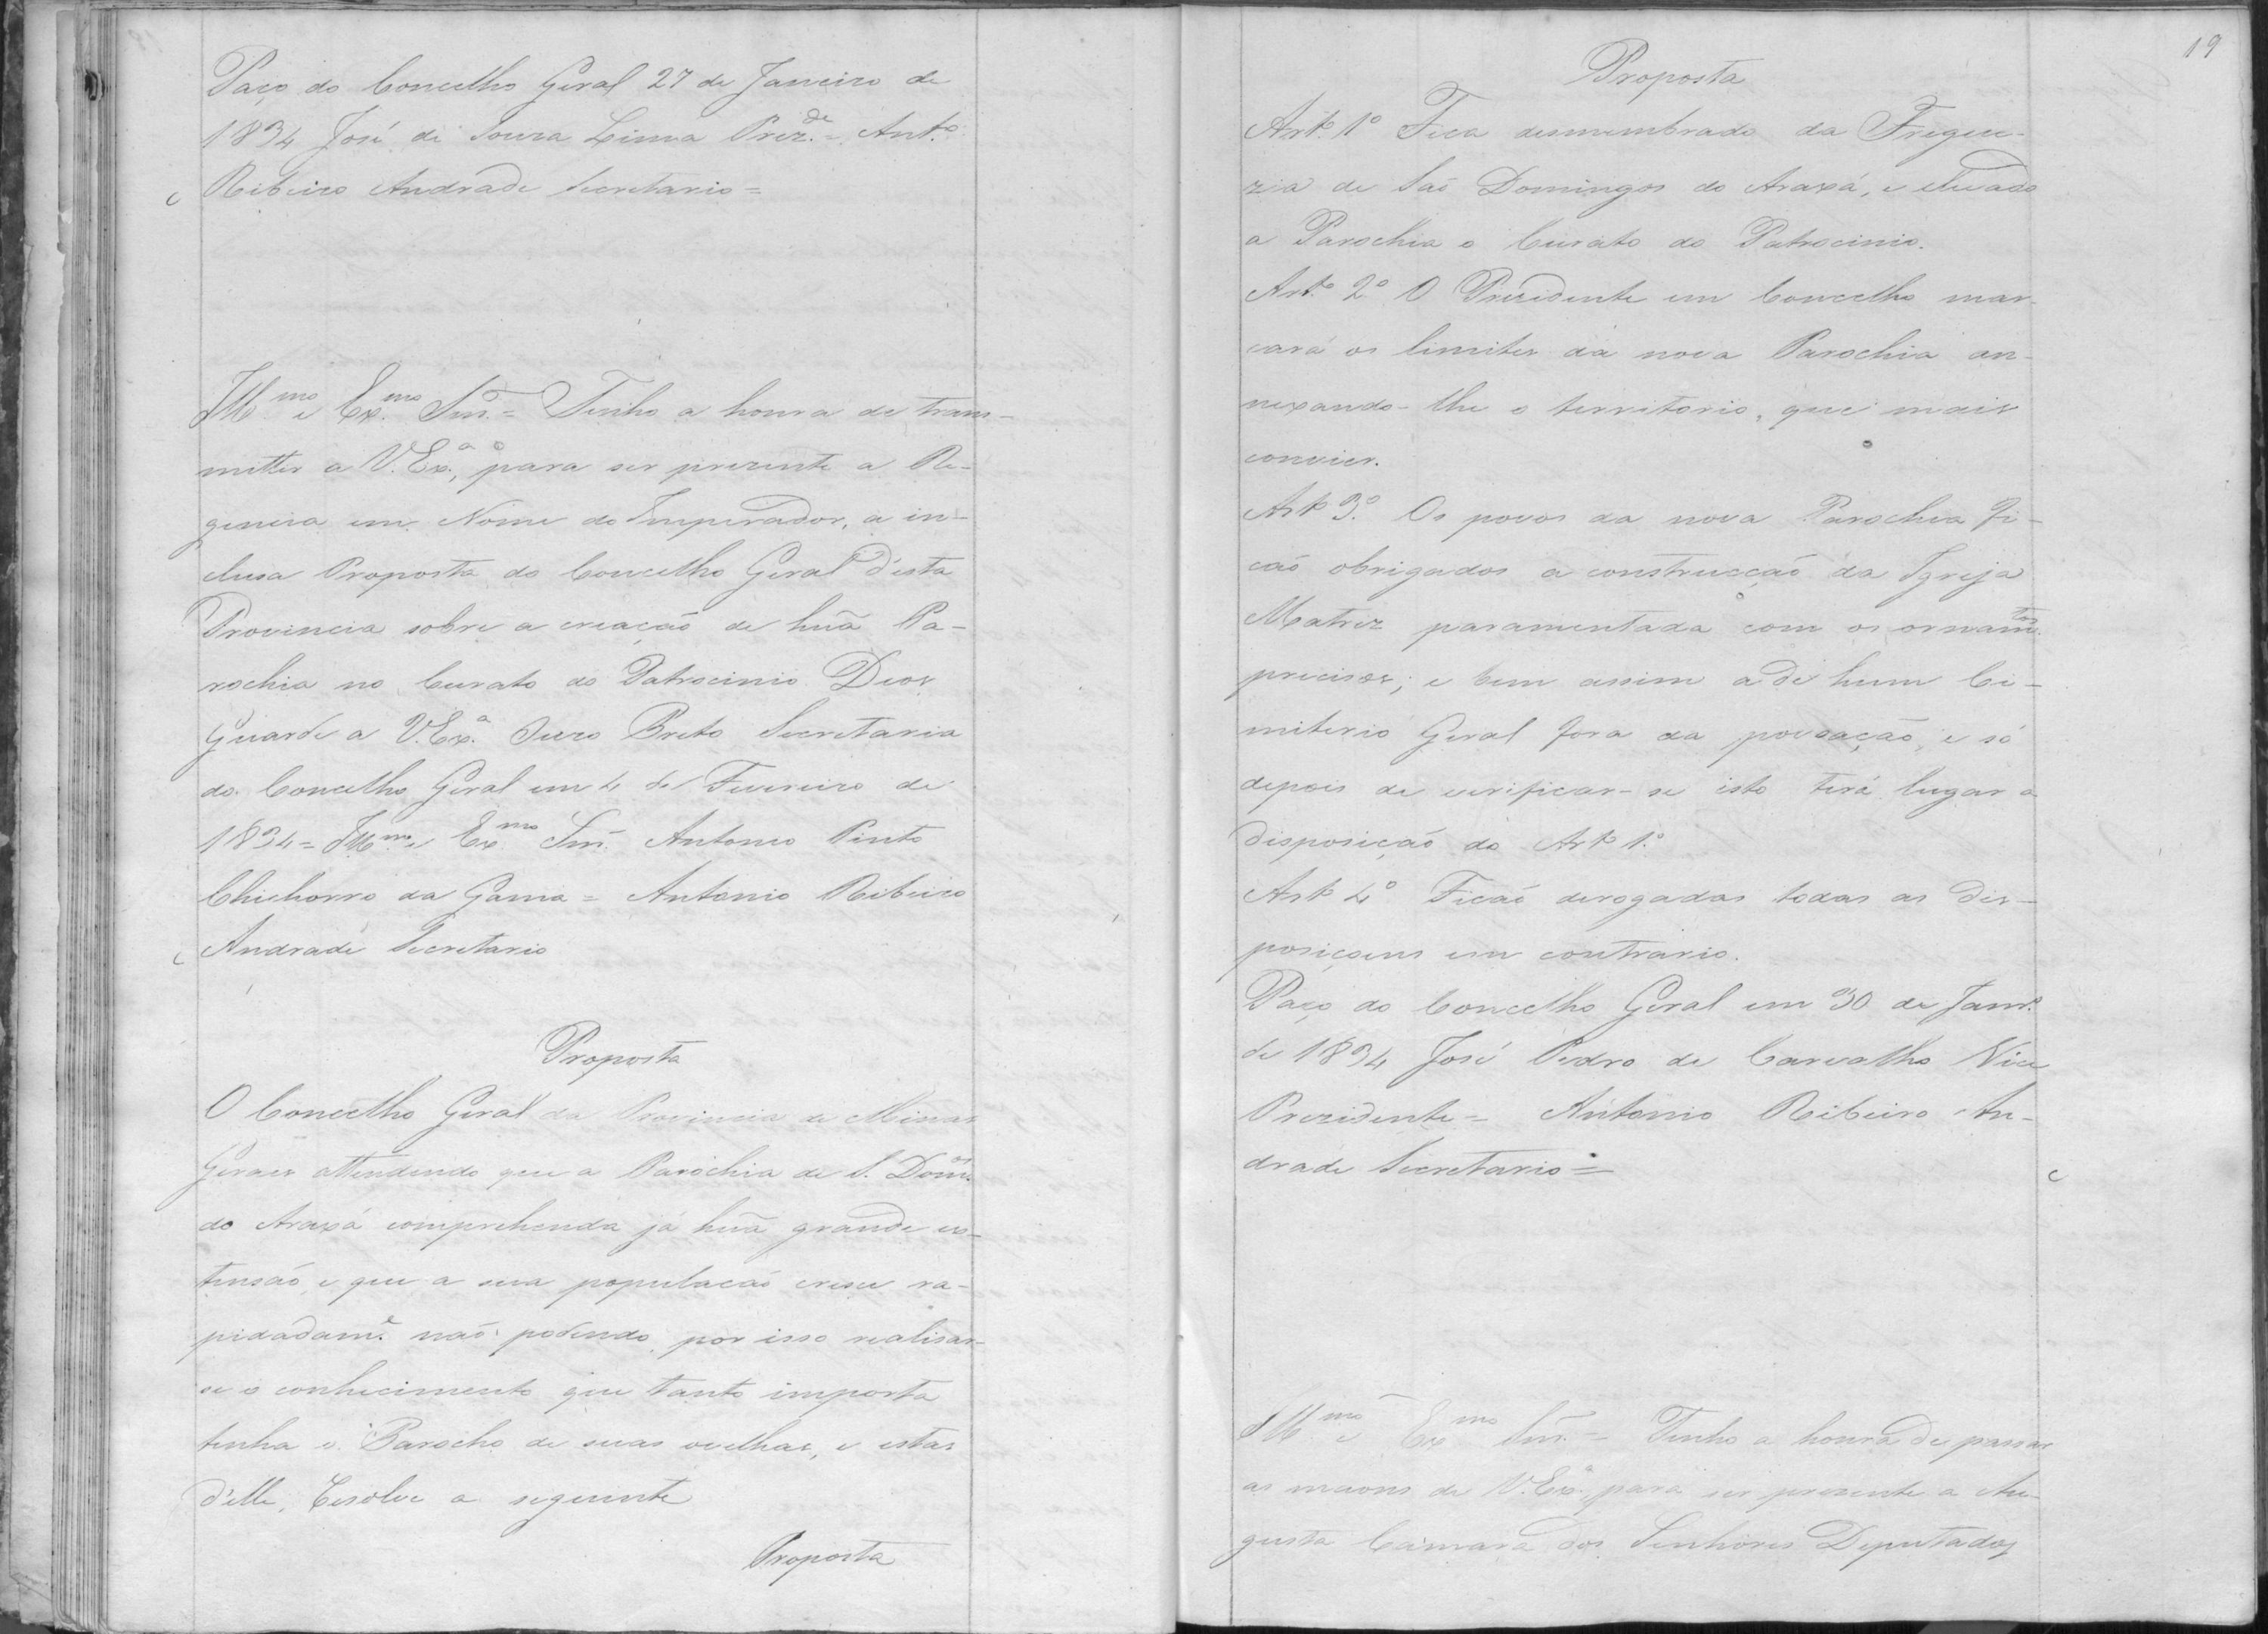 Paço do Concelho Geral 27 de Janeiro de
1834 José de Souza Lima Prez.de = Ant.o
Ribeiro Andrade Secretario =
Ill.mo e Ex.mo Snr. = Tenho a honra de trans-
mitter a V. Ex.a, para ser prezente a Re-
gencia em Nome do Imperador, a in-
clusa Proposta do Concelho Geral d'esta
Provincia sobre a creação de huã Pa-
rochia no Curato do Patrocinio Deos
Guarde a V. Ex.a Ouro Preto Secretaria
do Concelho Geral em 4 de Fevereiro de
1834 = Ill.mo e Ex.mo Snr. Antonio Pinto
Chichorro da Gama = Antonio Ribeiro
Andrade Secretario
Proposta
O Concelho Geral da Provincia de Minas
Geraes attendendo que a Parochia de S. Dom.os
do Araxá comprehenda já huã grande es-
tensão, e que a sua população cresce ra-
pidadam.e não podendo por isso realisar-
se o conhecimento que tanto importa
tenha o Parocho de suas ovelhas, e estas
d'elle, Resolve a seguinte
Proposta
19
Proposta
Art.o 1.o Fica desmembrado da Fregue-
zia de São Domingos do Araxá, e elevado
a Parochia o Curato do Patrocinio.
Art.o 2.o O Prezidente em Concelho mar-
cará os limites da nova Parochia an-
nexando-lhe o territorio, que mais
convier.
Art.o 3.o Os povos da nova Parochia fi-
cão obrigados a construcção da Igreja
Matriz paramentada com os ornam.tos
precisos; e bem assim a de hum Ce-
miterio Geral fora da povoação, e só
depois de verificar-se isto terá lugar a
disposição do Art.o 1.o
Art.o 4.o Ficão derogadas todas as dis-
posiçoens em contrario.
Paço do Concelho Geral em 30 de Janr.o
de 1834 José Pedro de Carvalho Vice
Prezidente = Antonio Ribeiro An-
drade Secretario =
Ill.mo e Ex.mo Snr. = Tenho a honra de passar
as maons de V. Ex.a para ser prezente a Au-
gusta Camara dos Senhores Deputados